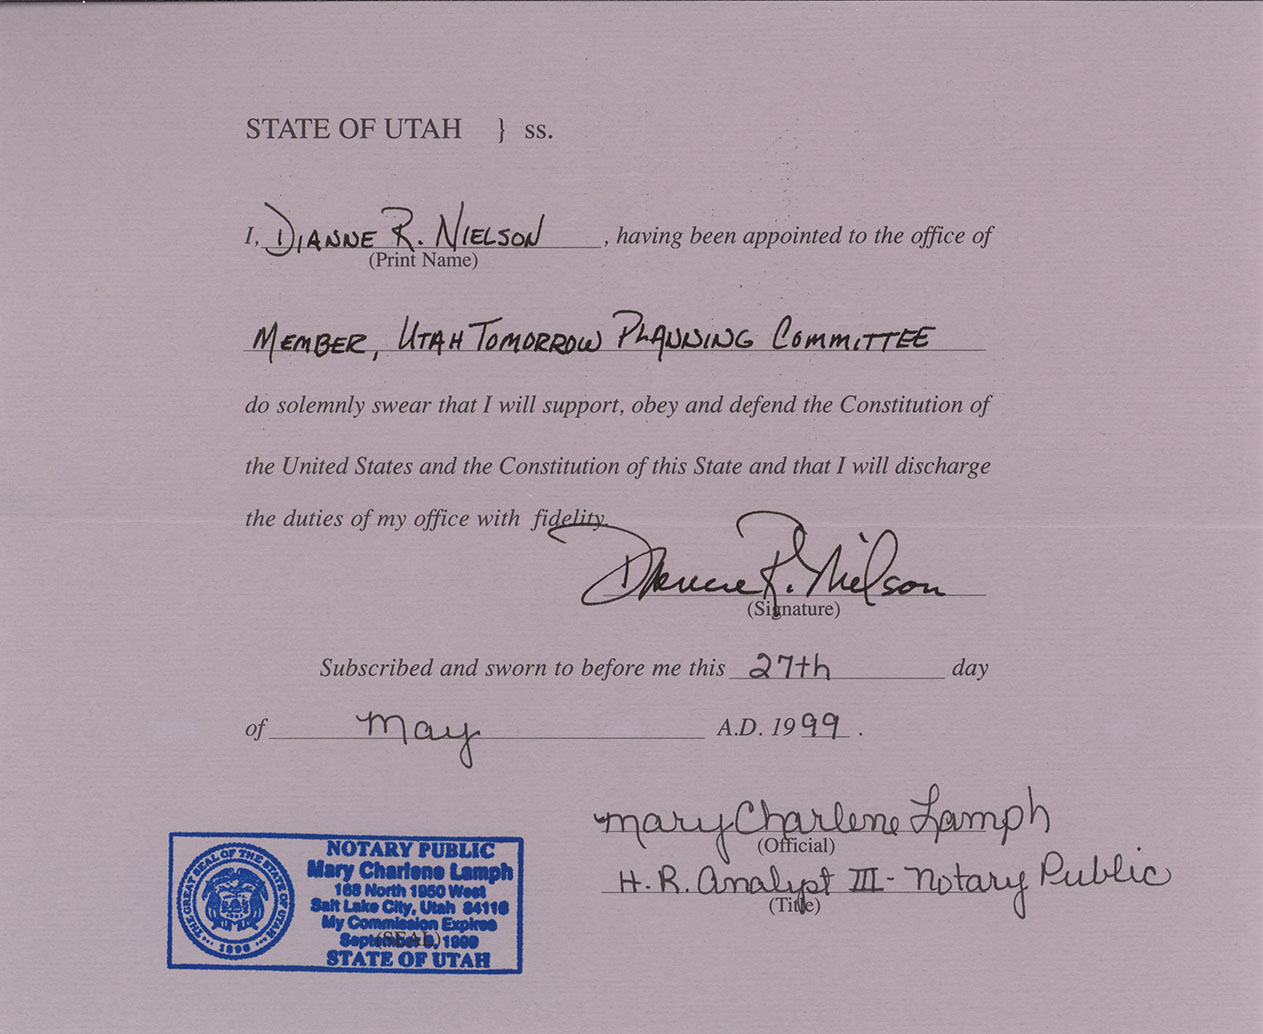 STATE OF UTAH } ss.
I, DIANNE R. NIELSON, having been appointed to the office of
(Print Name)
MEMBER, UTAH TOMORROW PLANNING COMMITTEE
do solemnly swear that I will support, obey and defend the Constitution of
the United States and the Constitution of this State and that I will discharge
the duties of my office with fidelity.
Dianne R. Nielson
(Signature)
Subscribed and sworn to before me this 27th day
of May A.D. 1999.
Mary Charlene Lamph
(Official)
H.R. Analyst III - Notary Public
(Title)
THE GREAT SEAL OF THE STATE OF UTAH
1896
NOTARY PUBLIC
Mary Charlene Lamph
168 North 1950 West
Salt Lake City, Utah 84116
My Commission Expires
September 1999
(SEAL)
STATE OF UTAH